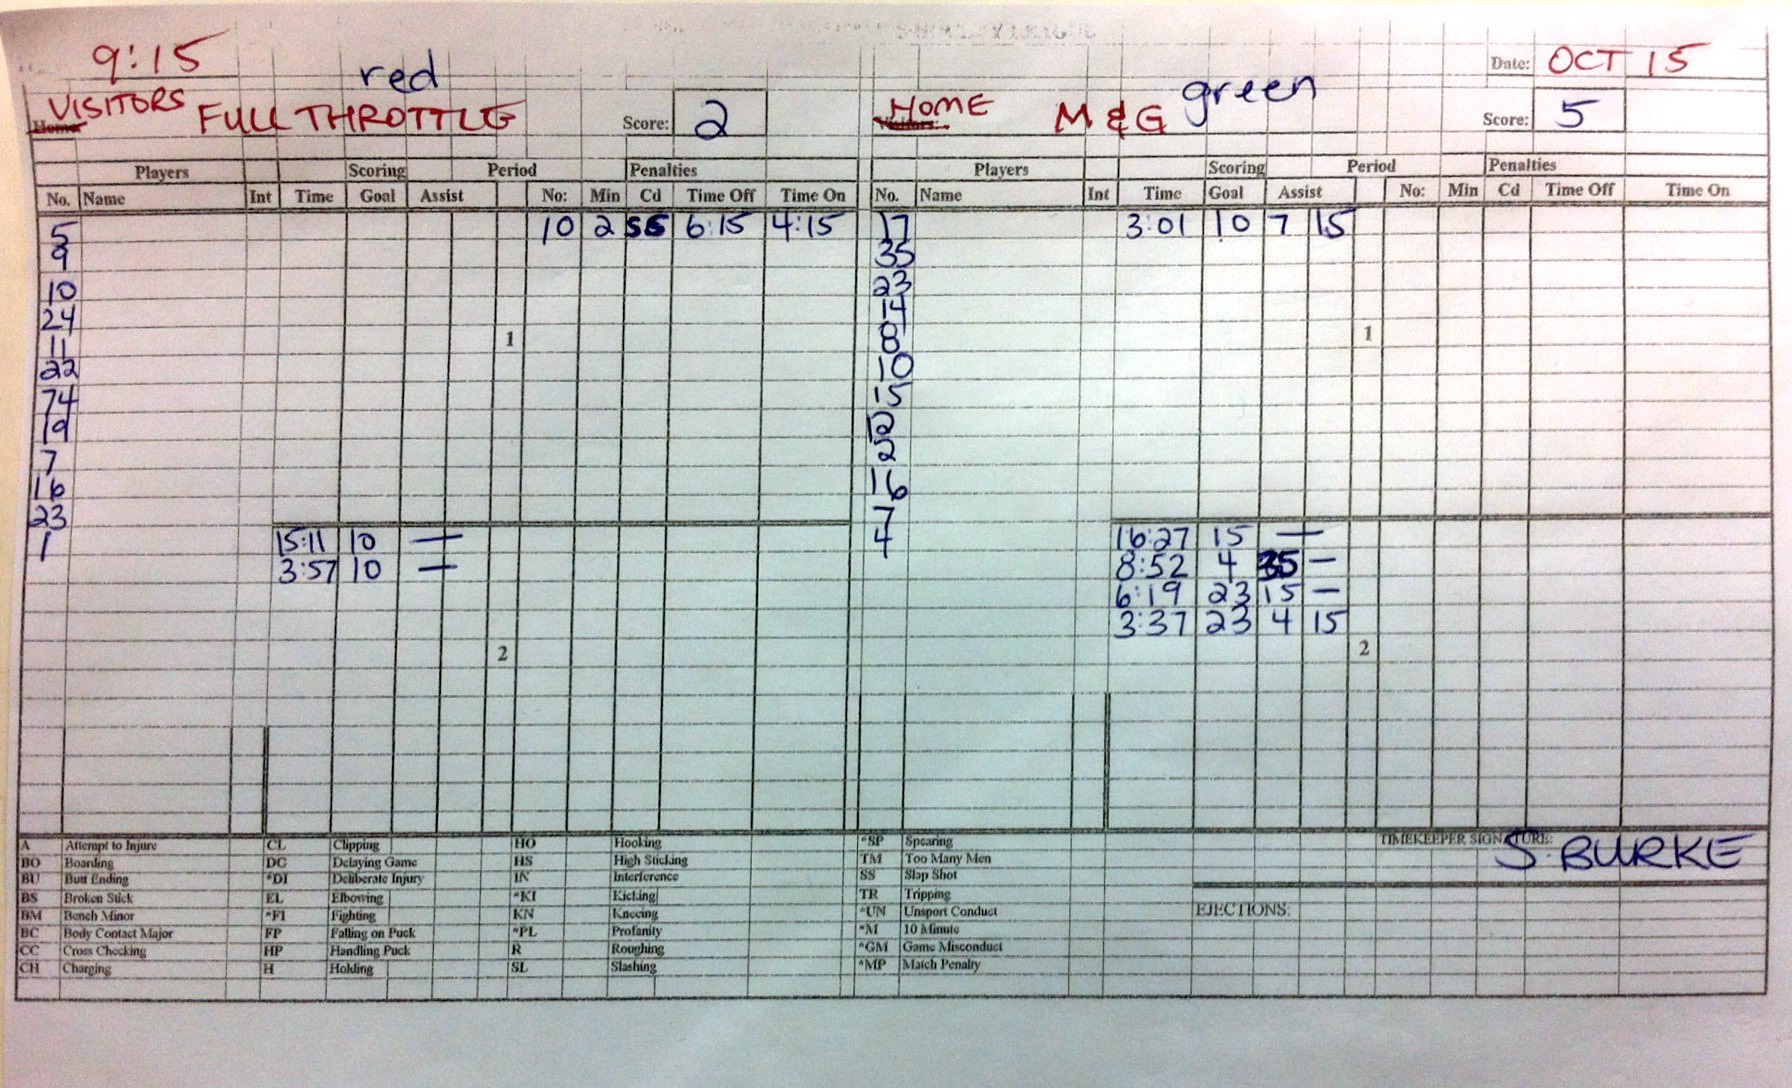 9:15 red green Date: OCT 15
VISITORS FULL THROTTLE Score: 2 HOME M & G Score: 5
Home: Visitors:
Players Scoring Period Penalties Players Scoring Period Penalties
No. Name Int Time Goal Assist No: Min Cd Time Off Time On No. Name Int Time Goal Assist No: Min Cd Time Off Time On
5 10 2 SS 6:15 4:15 17 3:01 10 7 15
9 35
10 23
24 14
11 1 8 1
22 10
74 15
19 12
7 2
16 16
23 7
1 15:11 10 — 4 16:27 15 —
3:57 10 — 8:52 4 35 —
6:19 23 15 —
3:37 23 4 15
2 2
A Attempt to Injure CL Clipping HO Hooking *SP Spearing TIMEKEEPER SIGNATURE: S. BURKE
BO Boarding DG Delaying Game HS High Sticking TM Too Many Men
BU Butt Ending *DI Deliberate Injury IN Interference SS Slap Shot
BS Broken Stick EL Elbowing *KI Kicking TR Tripping
BM Bench Minor *FI Fighting KN Kneeing *UN Unsport Conduct EJECTIONS:
BC Body Contact Major FP Falling on Puck *PL Profanity *M 10 Minute
CC Cross Checking HP Handling Puck R Roughing *GM Game Misconduct
CH Charging H Holding SL Slashing *MP Match Penalty